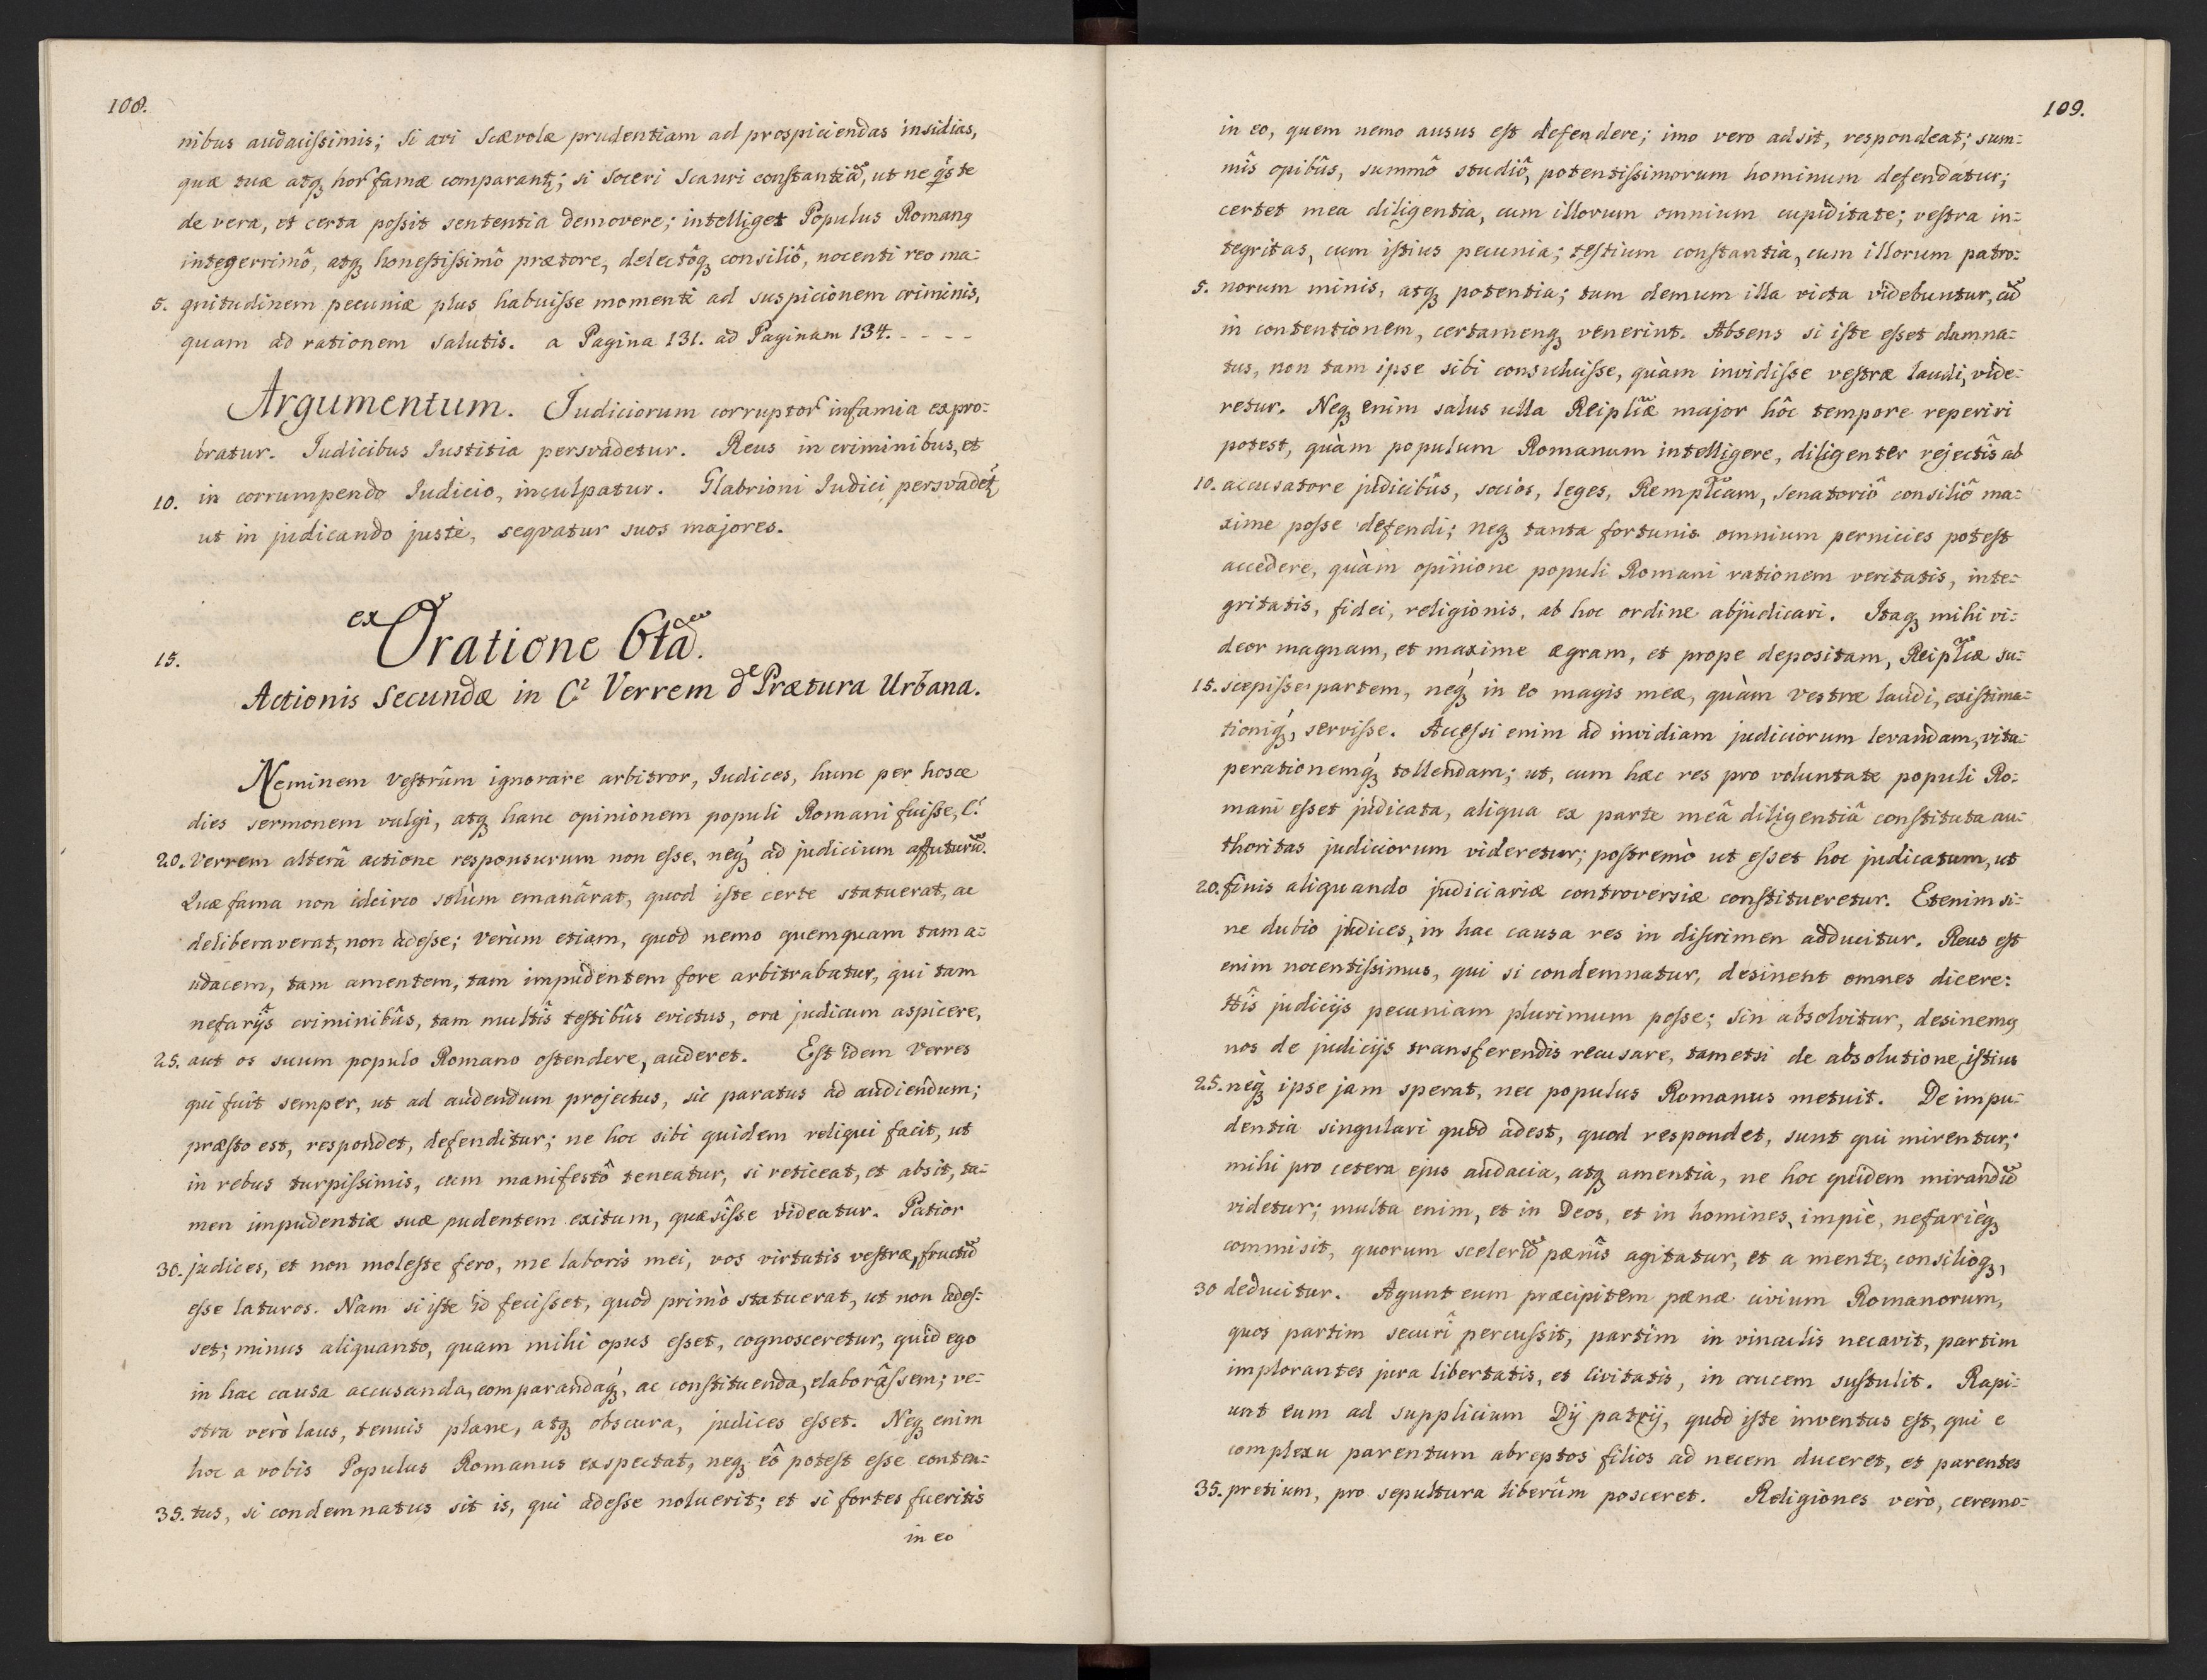 108.
nibus audacissimis; si avi Scævolæ prudentiam ad prospiciendas insidias,
quæ tuæ atq3 hor famæ comparant; si soceri Scauri constantiã, ut ne q̃s te
de vera, et certa possit sententia demovere; intelliget Populus Roman9
integerrimô, atq3 honestissimô prætore, delectôq3 consiliô, nocenti reo ma:
5. gnitudinem pecuniæ plus habuisse momenti ad suspicionem criminis,
quam ad rationem salutis. a Pagina 131. ad Paginam 134. - - - -
Argumentum. Judiciorum corruptor infamia expro:
bratur. Judicibus Justitia persvadetur. Reus in criminibus, et
10. in corrumpendo Judicio, inculpatur. Glabrioni Judici persvadet,
ut in judicando justè, seqvatur suos majores.
15. ex Oratione 6tã.
Actionis Secundæ in C² Verrem de Prætura Urbana.
Neminem Vestrûm ignorare arbitror, Judices, hunc per hosce
dies sermonem vulgi, atq3 hanc opinionem populi Romani fuisse, C.
20. Verrem alterâ actione responsurum non esse, neq3 ad judicium affuturũ.
Quæ fama non idcirco solùm emanârat, quod iste certe statuerat, ac
deliberaverat, non adesse; verùm etiam, quod nemo quemquam tam a=
udacem, tam amentem, tam impudentem fore arbitrabatur, qui tam
nefarijs criminibûs, tam multîs testibûs evictus, ora judicum aspicere,
25. aut os suum populo Romano ostendere, auderet. Est idem Verres
qui fuit semper, ut ad audendum projectus, sic paratus ad audiendum;
præsto est, respondet, defenditur; ne hoc sibi quidem reliqui facit, ut
in rebus turpissimis, cum manifestô teneatur, si reticeat, et absit, ta=
men impudentiæ suæ pudentem exitum, quæsîsse videatur. Patior
30. judices, et non moleste fero, me laboris mei, vos virtutis vestræ, fructũ
esse laturos. Nam si iste id fecisset, quod primò statuerat, ut non ades=
set; minus aliquanto, quam mihi opus esset, cognosceretur, quid ego
in hac causa accusanda, comparandaq3, ac constituenda, elaborâssem; ve=
stra verò laus, tenuis plane, atq3 obscura, judices esset. Neq3 enim
hoc a vobis Populus Romanus exspectat, neq3 eô potest esse conten=
35. tus, si condemnatus sit is, qui adesse noluerit; et si fortes fueritis
in eo
109.
in eo, quem nemo ausus est defendere; imo vero adsit, respondeat; sum=
mîs opibûs, summô studiô, potentissimorum hominum defendatur;
certet mea diligentia, cum illorum omnium cupiditate; vestra in=
tegritas, cum istius pecunia; testium constantia, cum illorum patro=
5. norum minis, atq3 potentia; tum demum illa victa videbuntur, cũ
in contentionem, certamenq3 venerint. Absens si iste esset damna=
tus, non tam ipse sibi consuluisse, quàm invidisse vestræ laudi, vide=
retur. Neq3 enim salus ulla Reiplicæ major hôc tempore reperiri
potest, quàm populum Romanum intelligere, diligenter rejectîs ab
10. accusatore judicibûs, socios, leges, Remplicam, senatoriô consiliô ma=
xime posse defendi; neq3 tanta fortunis omnium pernicies potest
accedere, quàm opinione populi Romani rationem veritatis, inte=
gritatis, fidei, religionis, ab hoc ordine abjudicari. Itaq3 mihi vi=
deor magnam, et maxime ægram, et prope depositam, Reiplicæ su=
15. scepisse partem, neq3 in eo magis meæ, quàm vestræ laudi, existima=
tioniq3, servisse. Accessi enim ad invidiam judiciorum levandam, vitu=
perationemq3 tollendam; ut, cum hæc res pro voluntate populi Ro=
mani esset judicata, aliqua ex parte meâ diligentiâ constituta au=
thoritas judiciorum videretur; postremò ut esset hoc judicatum, ut
20. finis aliquando judiciariæ controversiæ constitueretur. Etenim si=
ne dubio judices, in hac causa res in discrimen adducitur. Reus est
enim nocentissimus, qui si condemnatur, desinent omnes dicere:
hîs judicijs pecuniam plurimum posse; sin absolvitur, desinem9
nos de judicijs transferendis recusare, tametsi de absolutione istius
25. neq3 ipse jam sperat, nec populus Romanus metuit. De impu=
dentia singulari quòd adest, quod respondet, sunt qui mirentur;
mihi pro cetera ejus audacia, atq3 amentia, ne hoc quidem mirandũ
videtur; multa enim, et in Deos, et in homines, impiè, nefarièq3
commisit, quorum scelerũ pænîs agitatur, et a mente, consilioq3,
30 deducitur. Agunt eum præcipitem pænæ civium Romanorum,
quos partim securî percussit, partim in vinculis necavit, partim
implorantes jura libertatis, et civitatis, in crucem sustulit. Rapi=
unt eum ad supplicium Dij patrij, quòd iste inventus est, qui e
complexu parentum abreptos filios ad necem duceret, et parentes
35. pretium, pro sepultura liberûm posceret. Religiones verò, ceremo=